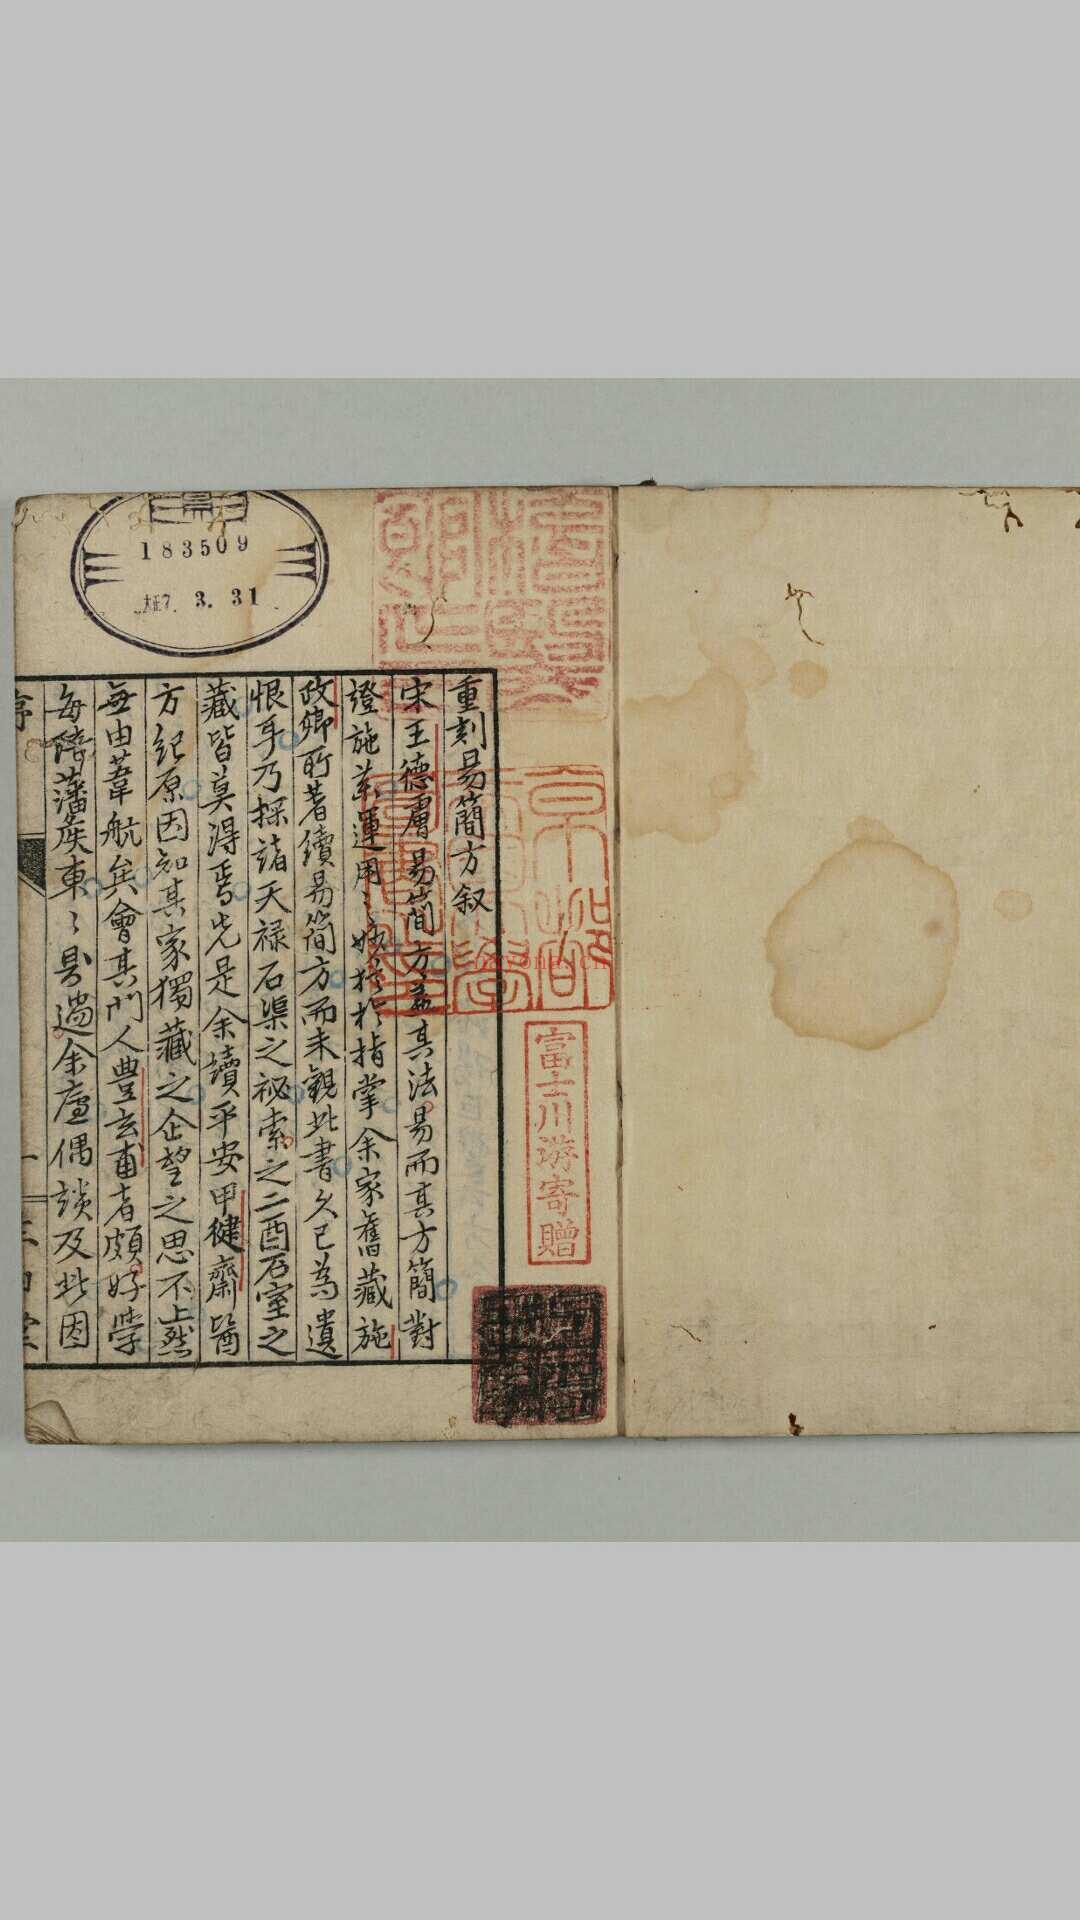 重刻易簡方叙
宋王德膚易簡方蓋其法易而其方簡對
證施藥運用之妙於指掌余家舊藏施
政卿所著續易简方而未観此書久已為遺
恨乎乃探諸天禄石渠之祕索之二酉石室之
藏皆莫得焉先是余讀平安甲健齋醫
方紀原因知其家獨藏之企望之思不止然
無由葦航矣會其門人豊玄甫者頗好学
每陪藩矦東之具過余廬偶談及此因
序
183509
大正7. 3. 31
京都
富士川游寄贈